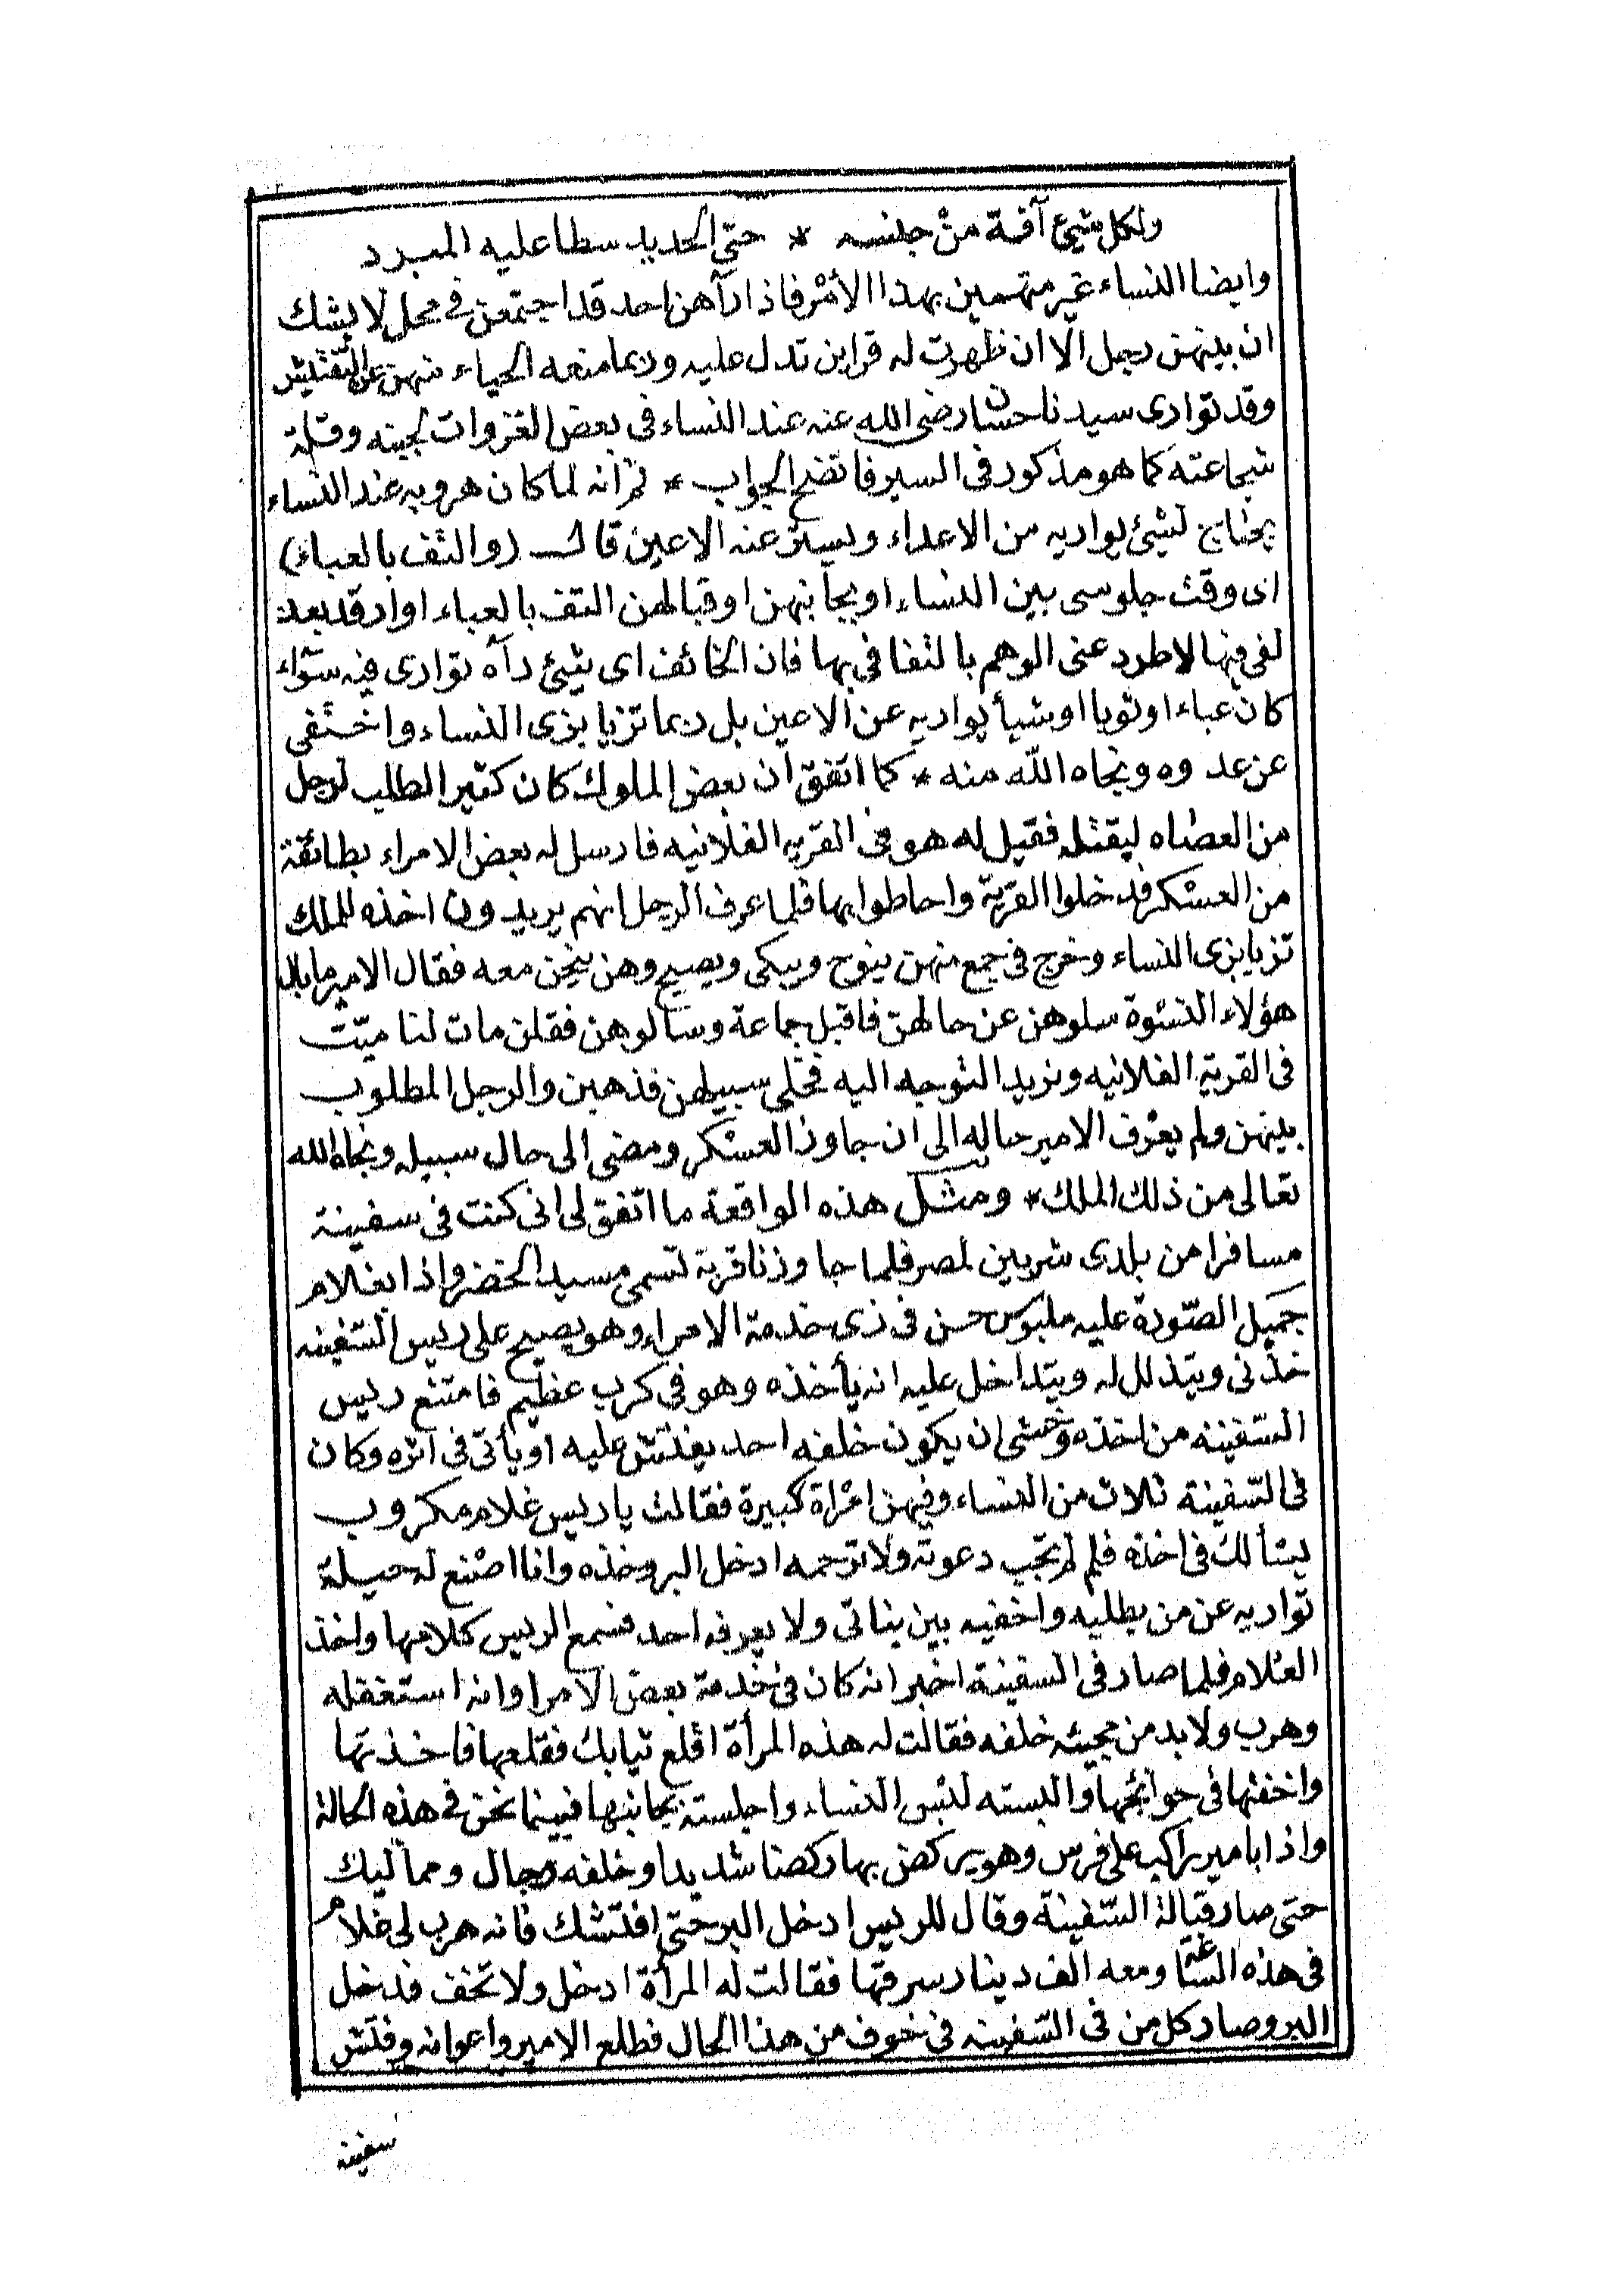 ولكل شيئ آفة من جنسه * حتى الحديد سطا عليه المبرد
وايضا النساء غير متهمين بهذا الأمر فاذا رآهن احد قد اجتمعن في محل لا يشك
ان بينهن رجل الا ان ظهرت له قراين تدل عليه وربما منعه الحياء منهن عن التفتيش
وقد توارى سيدنا حسان رضى الله عنه عند النساء في بعض الغزوات لجبنه وقلة
شجاعته كما هو مذكور في السير فاتضح الجواب * ثم انه لما كان هروبه عند النساء
يحتاج لشيئ يواريه من الاعداء ويستره عنه الاعين قال (والتف بالعباء)
اى وقت جلوسى بين النساء او بجانبهن او قبالهن التف بالعباء او ارقد بعد
لفى فيها لاطرد عنى الوهم بالتفافى بها فان الخائف اى شيئ رآه توارى فيه سواء
كان عباء او ثوبا او شيأ يواريه عن الاعين بل ربما تزيا بزى النساء واختفى
عن عدوه ونجاه الله منه * كما اتفق ان بعض الملوك كان كثير الطلب لرجل
من العصاه ليقتله فقيل له هو فى القريه الفلانيه فارسل له بعض الامراء بطائفة
من العسكر فدخلوا القرية واحاطوا بها فلما عرف الرجل انهم يريدون اخذه للملك
تزيا بزى النساء وخرج فى جمع منهن ينوح ويبكى ويصيح وهن ينحن معه فقال الامير ما بال
هؤلاء النسوة سلوهن عن حالهن فاقبل جماعة وسألوهن فقلن مات لنا ميت
فى القرية الفلانيه ونريد التوجه اليه فخلى سبيلهن فذهبن والرجل المطلوب
بينهن ولم يعرف الامير حاله الى ان جاوز العسكر ومضى الى حال سبيله ونجاه الله
تعالى من ذلك الملك * ومثل هذه الواقعة ما اتفق لى انى كنت فى سفينة
مسافرا من بلدى شربين لمصر فلما جاوزنا قرية تسمى مسيد الخضر واذا بغلام
جميل الصورة عليه ملبوس حسن فى زى خدمة الامراء وهو يصيح على ريس السفينه
خذنى ويتذلل له ويتداخل عليه انه يأخذه وهو فى كرب عظيم فامتنع ريس
السفينه من اخذه وخشى ان يكون خلفه احد يفتش عليه او يأتى فى اثره وكان
فى السفينة ثلاث من النساء وفيهن امرأة كبيرة فقالت يا ريس غلام مكروب
يسألك فى اخذه فلم لم تجب دعوته ولا ترحمه ادخل البر وخذه وانا اصنع له حيلة
تواريه عن من يطلبه واخفيه بين بناتى ولا يعرفه احد فسمع الريس كلامها واخذ
الغلام فلما صار فى السفينة اخبر انه كان فى خدمة بعض الامرا وانه استغفله
وهرب ولابد من مجيئه خلفه فقالت له هذه المرأة اقلع ثيابك فقلعها فاخذتها
واخفتها فى حوائجها والبسته لبس النساء واجلسته بجانبها فبينما نحن فى هذه الحالة
واذا بامير راكب على فرس وهو يركض بها ركضا شديدا وخلفه رجال ومماليك
حتى صار قبالة السفينة وقال للريس ادخل البر حتى افتشك فانه هرب لى غلام
فى هذه الساعة ومعه الف دينار سرقها فقالت له المرأة ادخل ولا تخف فدخل
البر وصار كل من فى السفينه فى خوف من هذا الحال فطلع الامير واعوانه وفتش
سفينه